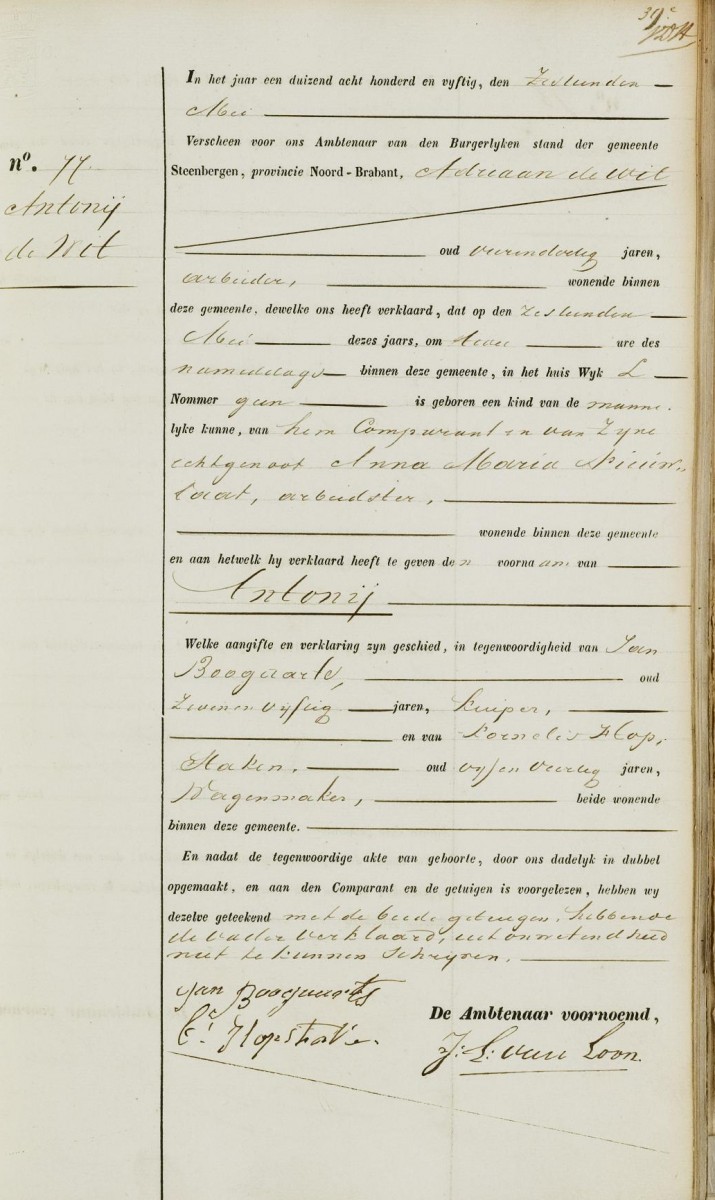 In het jaar een duizend acht honderd en vyftig, den Zestienden
Mei
nº. 77.
Antonij
de Wit
Verscheen voor ons Ambtenaar van den Burgerlyken stand der gemeente
Steenbergen, provincie Noord-Brabant, Adriaan de Wit
oud vierendertig jaren,
arbeider, wonende binnen
deze gemeente, dewelke ons heeft verklaard, dat op den Zestienden
Mei dezes jaars, om twee ure des
namiddags binnen deze gemeente, in het huis Wyk L
Nommer geen is geboren een kind van de manne-
lyke kunne, van hem Comparant en van zyne
echtgenoot Anna Maria Nieuw-
laat, arbeidster,
wonende binnen deze gemeente
en aan hetwelk hy verklaard heeft te geven den voornaam van
Antonij
Welke aangifte en verklaring zyn geschied, in tegenwoordigheid van Jan
Boogaarts, oud
Zevenenvyftig jaren, kuiper,
en van Kornelis Hop-
staken, oud vyfenveertig jaren,
Wagenmaker, beide wonende
binnen deze gemeente.
En nadat de tegenwoordige akte van geboorte, door ons dadelyk in dubbel
opgemaakt, en aan den Comparant en de getuigen is voorgelezen, hebben wy
dezelve geteekend met de beide getuigen, hebbende
de vader verklaard, uit onwetendheid
niet te kunnen schryven.
Jan Boogaarts
De Ambtenaar voornoemd,
Cs. Hopstaken.
J: L: van Loon.